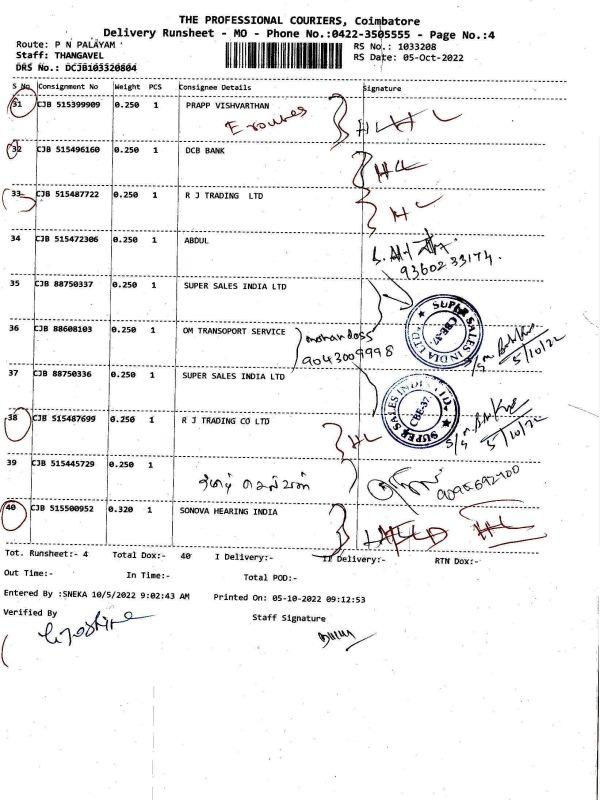 THE PROFESSIONAL COURIERS, Coimbatore
Delivery Runsheet - MO - Phone No.:0422-3505555 - Page No.:4
Route: P N PALAYAM
RS No.: 1033208
Staff: THANGAVEL
RS Date: 05-Oct-2022
DRS No.: DCJB103320804
S No Consignment No Weight PCS Consignee Details Signature
31 CJB 515399909 0.250 1 PRAPP VISHVARTHAN
E routes
32 CJB 515496160 0.250 1 DCB BANK
HL
33 CJB 515487722 0.250 1 R J TRADING LTD
HL
34 CJB 515472306 0.250 1 ABDUL
9360233174.
35 CJB 88750337 0.250 1 SUPER SALES INDIA LTD
SUPER SALES INDIA LTD. CBE-37.
36 CJB 88608103 0.250 1 OM TRANSOPORT SERVICE
mohandoss
9043009998
5/10/22
37 CJB 88750336 0.250 1 SUPER SALES INDIA LTD
SUPER SALES INDIA LTD. CBE-37.
5/10/22
38 CJB 515487699 0.250 1 R J TRADING CO LTD
HL
39 CJB 515445729 0.250 1
9095692700
40 CJB 515500952 0.320 1 SONOVA HEARING INDIA
HL
Tot. Runsheet:- 4 Total Dox:- 40 I Delivery:- II Delivery:- RTN Dox:-
Out Time:- In Time:- Total POD:-
Entered By :SNEKA 10/5/2022 9:02:43 AM Printed On: 05-10-2022 09:12:53
Verified By Staff Signature